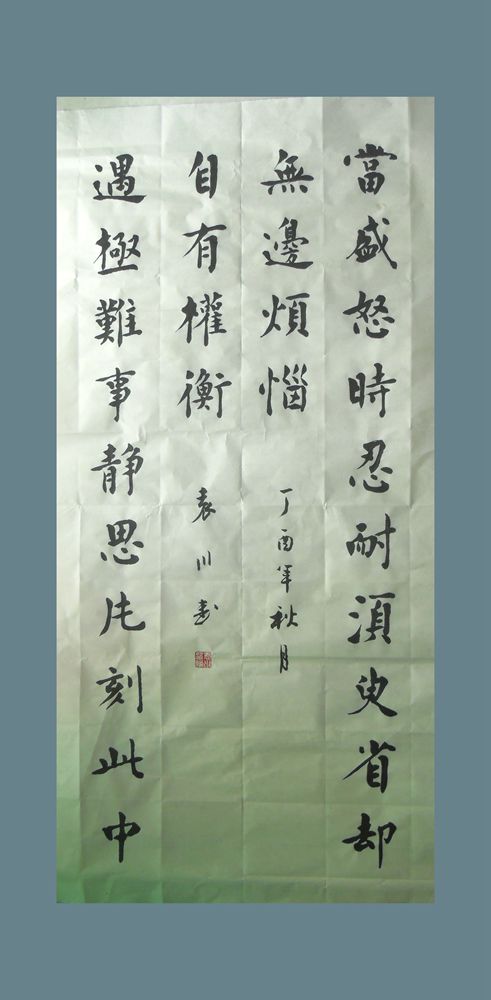 當盛怒時忍耐湏臾省却
無邊煩惱
丁酉年秋月
遇極難事静思片刻此中
自有權衡
袁川書